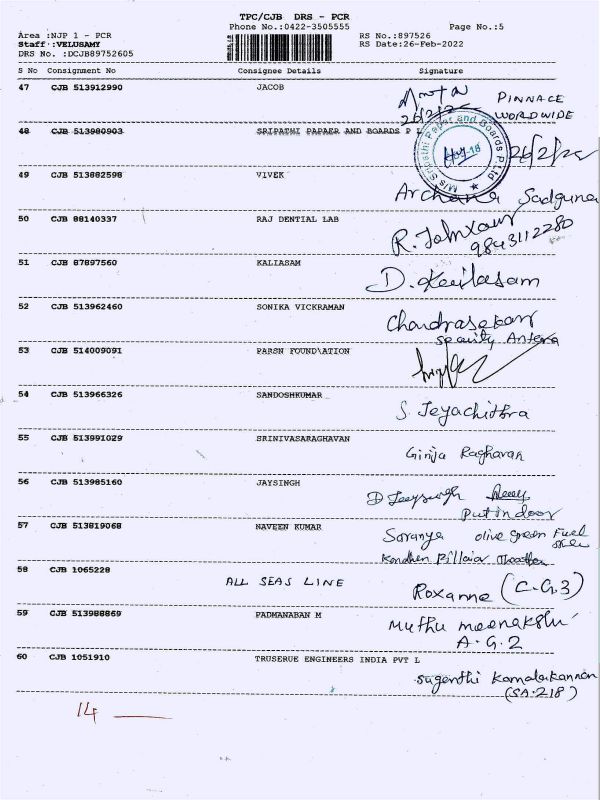 TPC/CJB DRS - PCR
Phone No.:0422-3505555 Page No.:5
Area :NJP 1 - PCR RS No.:897526
Staff :VELUSAMY RS Date:26-Feb-2022
DRS No. :DCJB89752605
S No Consignment No Consignee Details Signature
47 CJB 513912990 JACOB
PINNACE
26/2/22 WORLDWIDE
48 CJB 513980903 SRIPATHI PAPAER AND BOARDS P L
M/s Sripathi Paper and Boards P Ltd
26/2/22
49 CJB 513882598 VIVEK
Archana Sadguna
50 CJB 88140337 RAJ DENTIAL LAB
R.
9843112280
51 CJB 87897560 KALIASAM
D. Kailasam
52 CJB 513962460 SONIKA VICKRAMAN
Chandrasekar
53 CJB 514009091 PARSN FOUND\ATION
54 CJB 513966326 SANDOSHKUMAR
S. Jeyachithra
55 CJB 513991029 SRINIVASARAGHAVAN
Girija Raghavan
56 CJB 513985160 JAYSINGH
D Jeysingh
put in door
57 CJB 513819068 NAVEEN KUMAR
Saranya olive green Fuel
58 CJB 1065228
ALL SEAS LINE
Roxanne (C-G.3)
59 CJB 513988869 PADMANABAN M
Muthu meenakshi
A.G.2
60 CJB 1051910 TRUSERUE ENGINEERS INDIA PVT L
Sugenthi Kamalakannan
(SA.218)
14